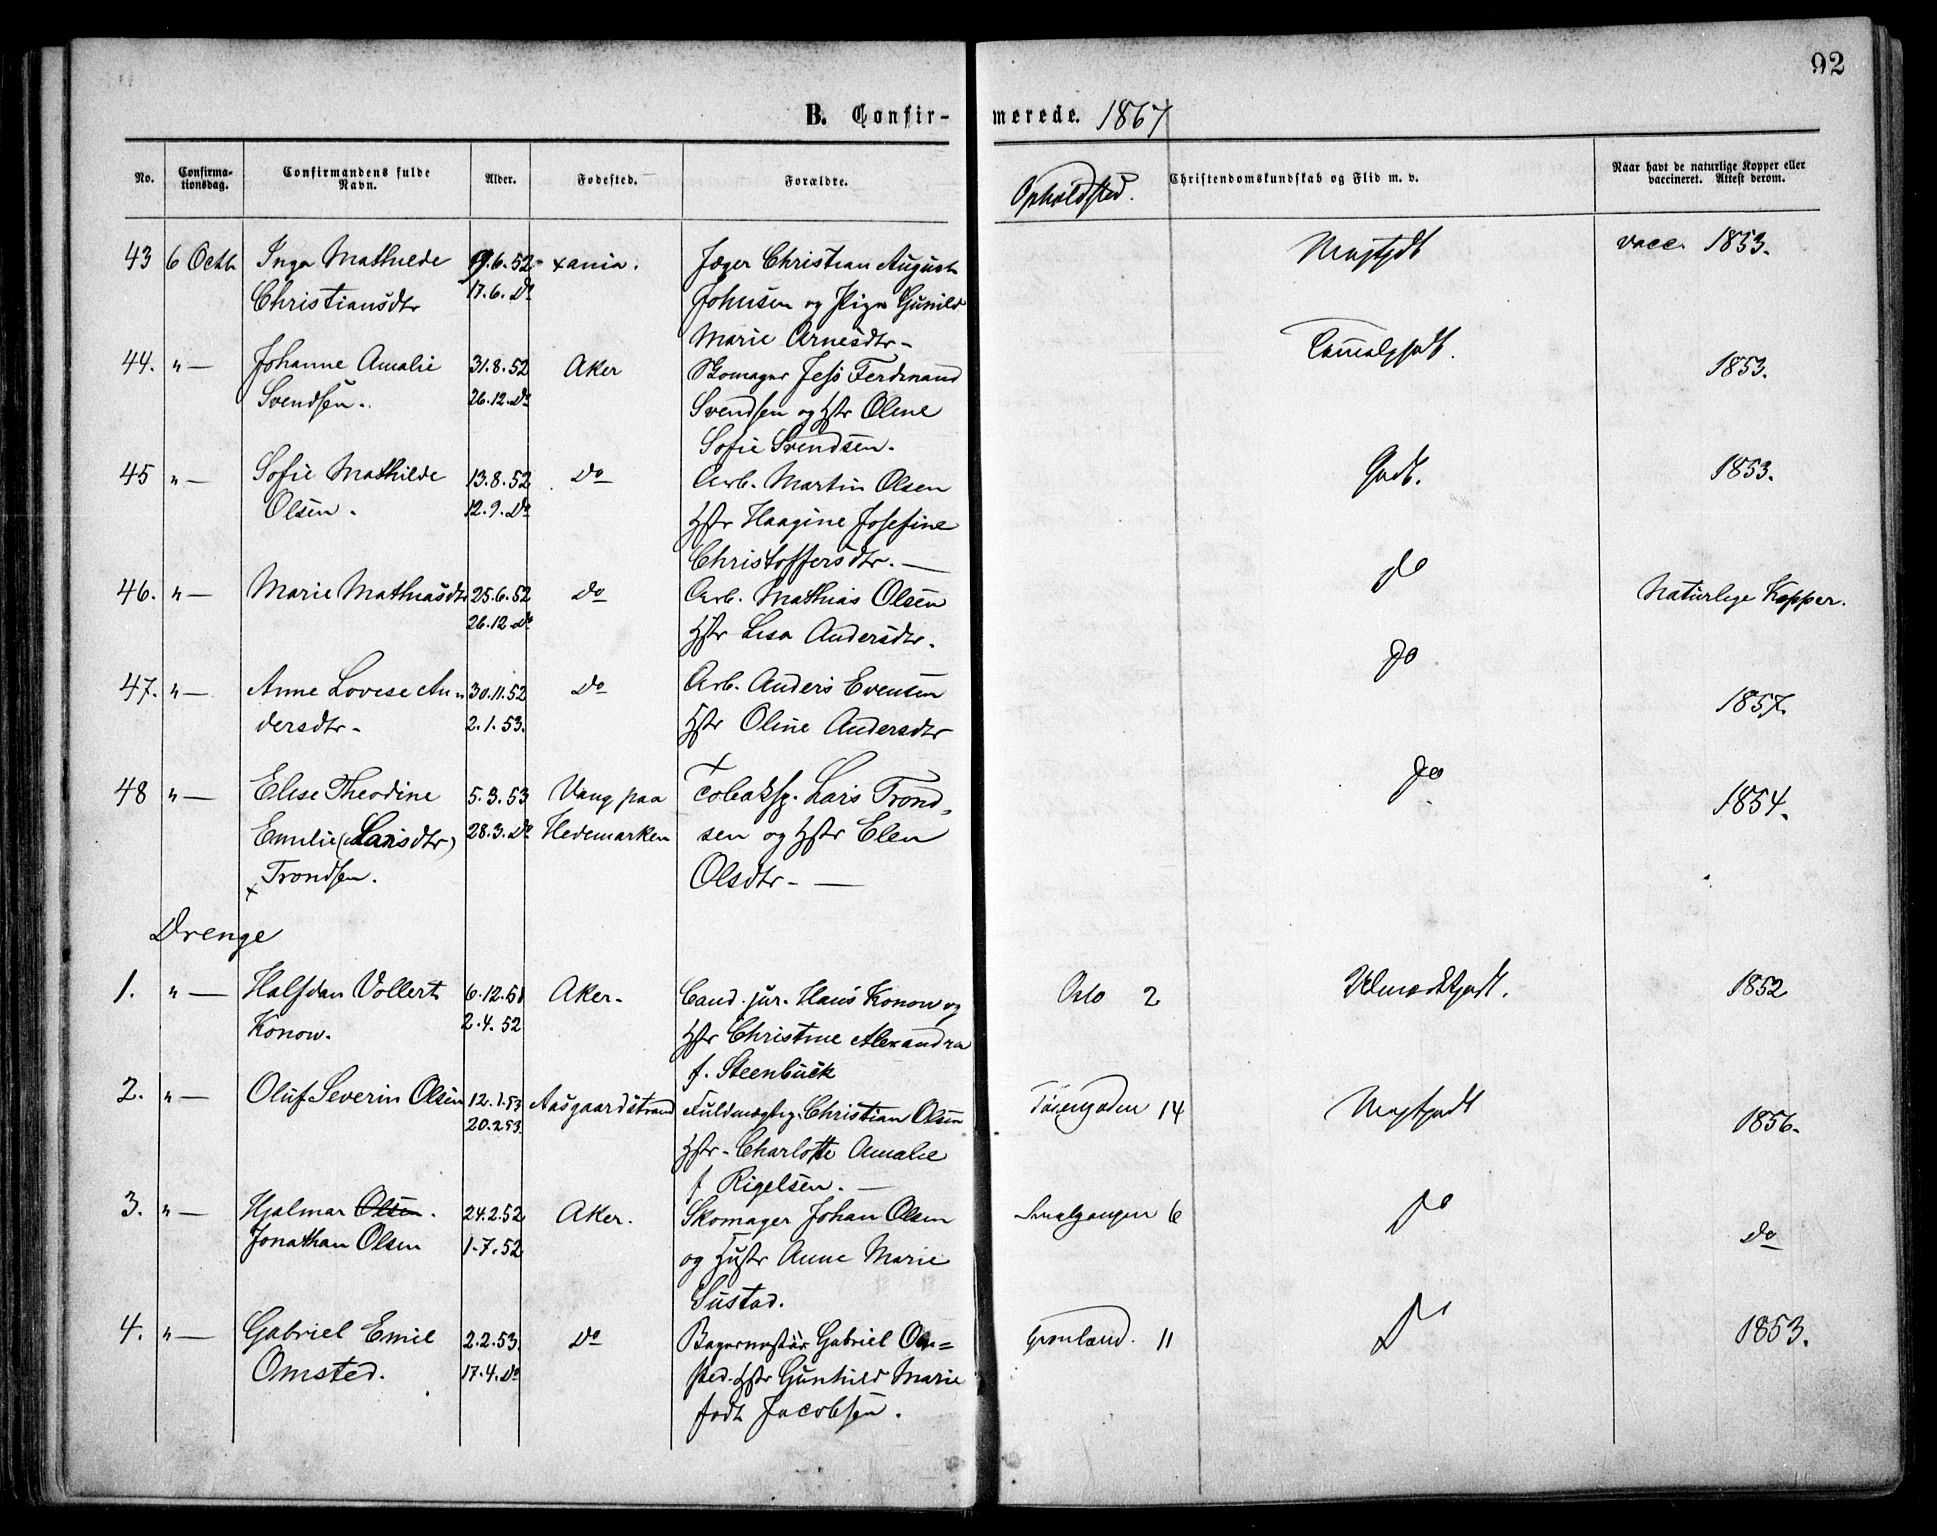 92
B. Confir- merede. 1867
No. Confirma- tionsdag. Confirmandens fulde Navn. Alder. Fødested. Forældre. Opholdsted. Christendomskundskab og Flid m. v. Naar havt de naturlige Kopper eller vaccineret. Attest derom.
43 6 Octb Inga Mathilde 9.6.52 xania. Jæger Christian August Megetgodt vacc. 1853.
Christiansdtr 17.6. Do Johnsen og Pige Gunild
Marie Arnesdtr-
44. " — Johanne Amalie 31.8.52 Aker Skomager Jess Ferdinand 1853.
Svendsen. 26.12. Do Svendsen og Hstr Oline
Sofie Svendsen.
45 " — Sofie Mathilde 13.8.52 Do Arb. Martin Olsen Godt. 1853.
Olsen. 12.9. Do Hstr Haagine Josefine
Christoffersdtr. —
46. " — Marie Mathiasdtr 25.6.52 Do Arb. Mathias Olsen Do Naturlige Kopper.
26.12 Do Hstr Lisa Andersdtr.
47. " — Anne Lovise An- 30.11.52 Do Arb. Anders Evensen Do 1857.
dersdtr- 2.1.53. Hstr Oline Andersdtr
48 " — Elise Theodine 5.3.53 Vang paa Tobaksp. Lars Trond- Do 1854.
Emilie (Larsdtr) 28.3. Do Hedemarken sen og Hstr Elen
x Trondsen. Olsdtr- —
Drenge
1. " — Halfdan Vollert 6.12.51 Aker- Cand. jur. Hans Konow og Oslo 2 Udmærketgodt. 1852
Konow. 2.4.52 Hstr Christine Alexandra
f. Steenbuck
2. " — Oluf Severin Olsen 12.1.53 Aasgaardstrand Fuldmægtig Christian Olsen Tøiengaden 14 Megetgodt 1856.
20.2.53. Hstr- Charlotte Amalie
f Rigelsen. —
3. " — Hjalmar Olsen. 24.2.52 Aker. Skomager Johan Olsen Smalgangen 6 Do Do
Jonathan Olsen 1.7.52 og Hustr Anne Marie
Sustad.
4. " — Gabriel Emil 2.2.53. Do Bagermester Gabriel Om= Grønland. 11 Do 1853.
Omsted. 17.4. Do sted. Hstr Gunhild Marie
født Jacobsen.